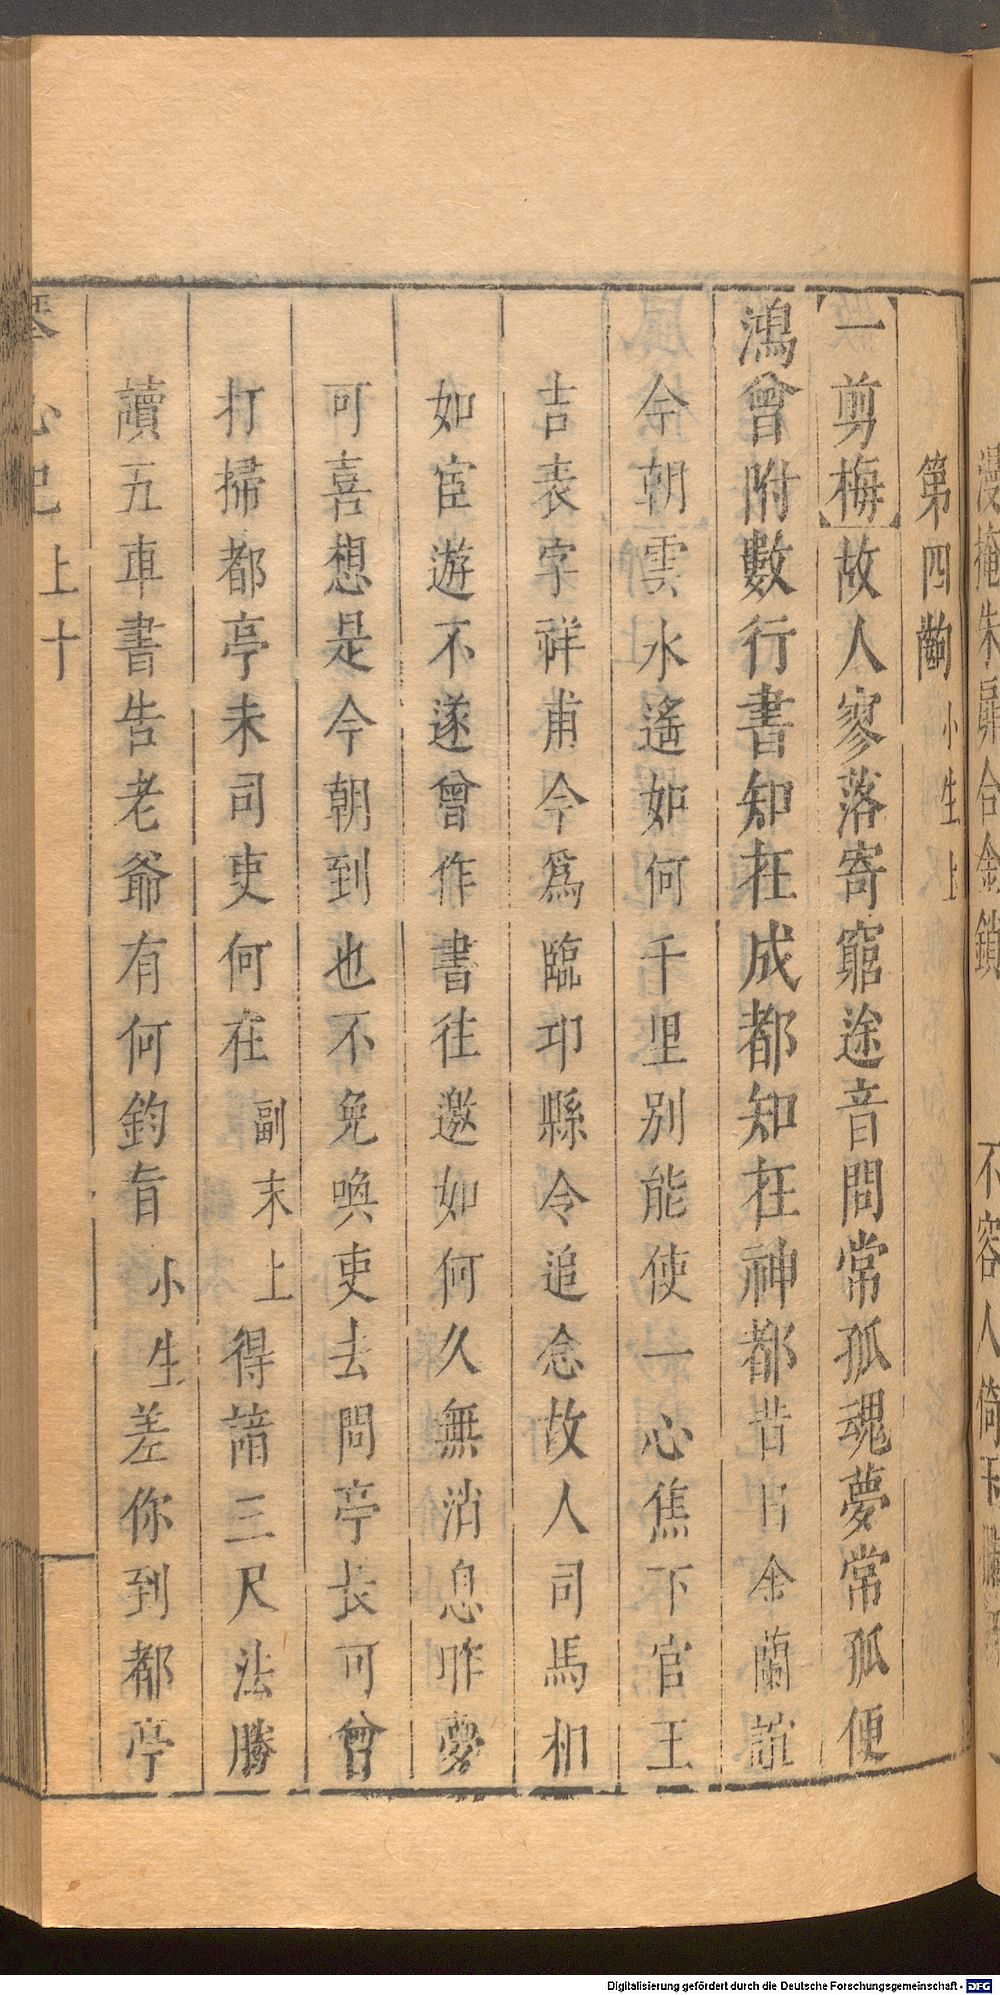 漫掩朱扉合金鎖　不容人倚玉
第四齣 小生上
【一剪梅】故人寥落寄窮途音問常孤魂夢常孤便
鴻曾附數行書知在成都知在神都昔日金蘭誼
今朝雲水遙如何千里別能使一心焦下官王
吉表字祥甫今爲臨邛縣令追念故人司馬相
如宦遊不遂曾作書往邀如何久無消息昨夢
可喜想是今朝到也不免喚吏去問亭長可曾
打掃都亭未司吏何在 副末上 得諳三尺法勝
讀五車書告老爺有何鈞旨 小生 差你到都亭
琴心記 上 十
Digitalisierung gefördert durch die Deutsche Forschungsgemeinschaft - DFG